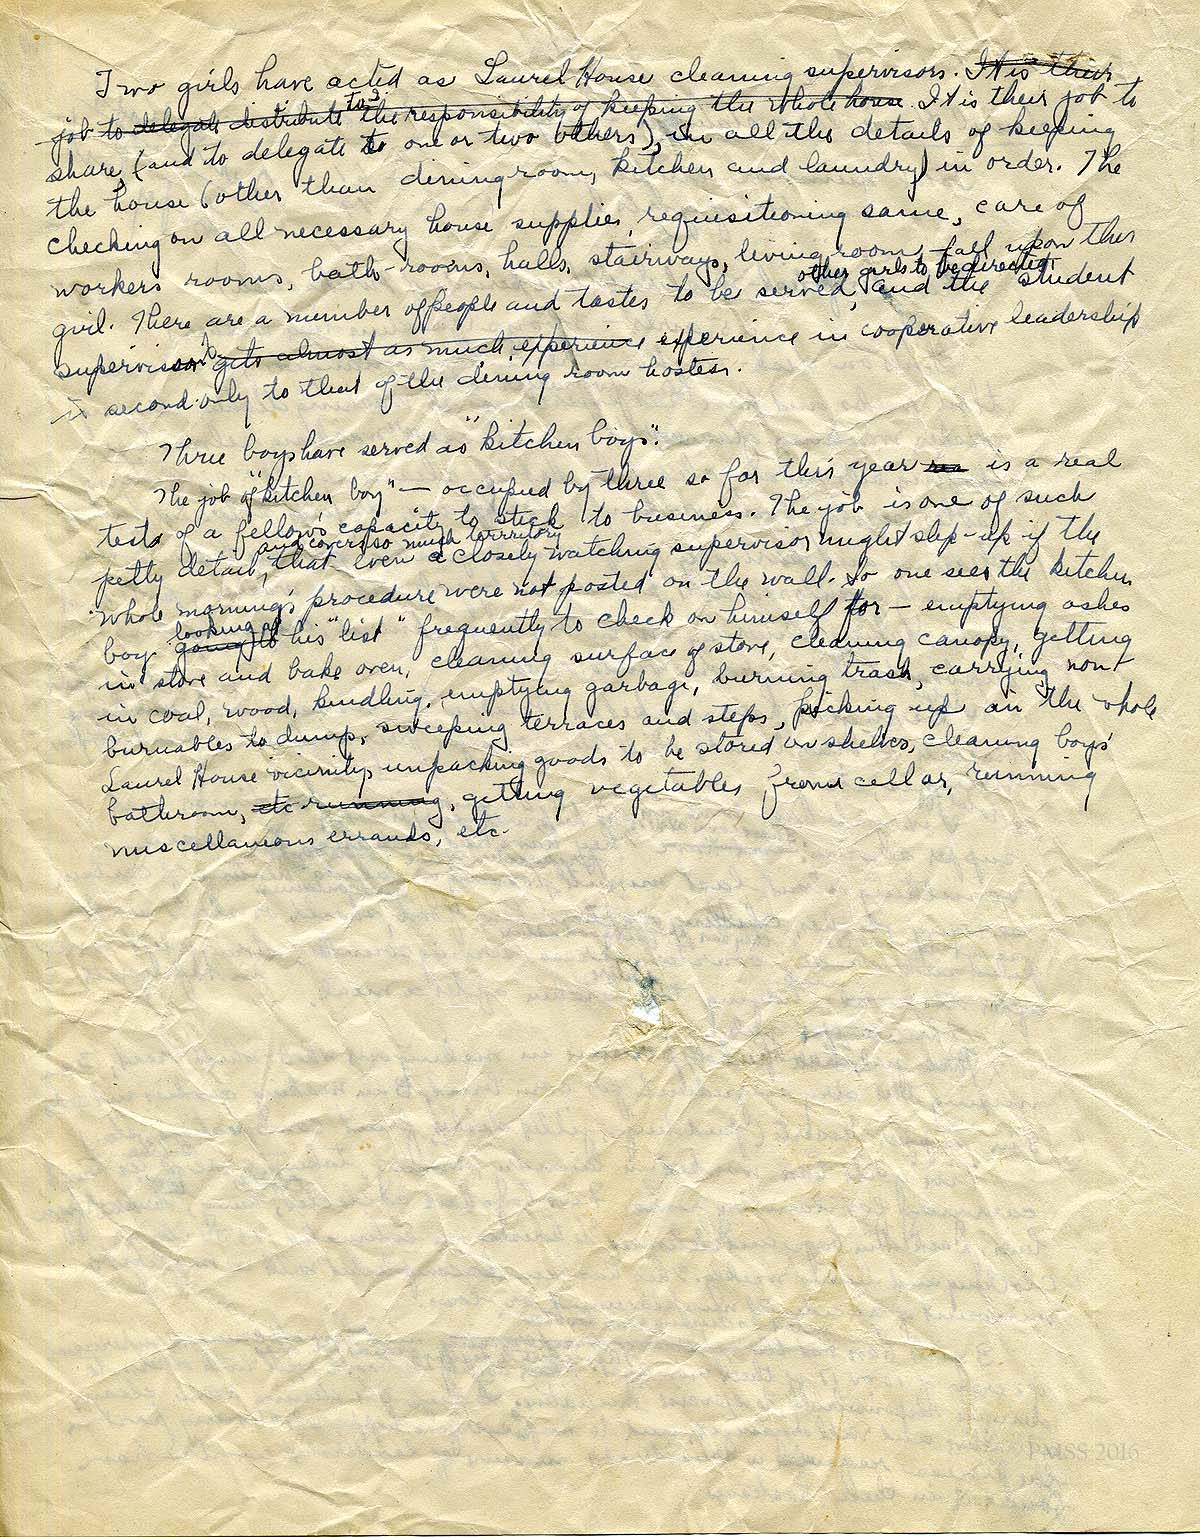 Two girls have acted as Laurel House cleaning supervisors. It is their
job to delegate distribute to 3 the responsibility of keeping the whole house. It is their job to
share, (and to delegate to one or two others), in all the details of keeping
the house (other than dining room, kitchen and laundry) in order. The
checking on all necessary house supplies, requisitioning same, care of
workers rooms, bath-rooms, halls, stairways, living room fall upon this
other girls to be directed
girl. There are a number of people and tastes to be served, and the student
supervisor's gets almost as much experience experience in cooperative leadership
is second only to that of the dining room hostess.
Three boys have served as "kitchen boys".
The job of "kitchen boy" — occupied by three so far this year is a real
test of a fellow's capacity to stick to business. The job is one of such
and covers so much territory
petty detail, that even a closely watching supervisor might slip-up if the
whole morning's procedure were not posted on the wall. So one sees the kitchen
looking at
boy going to his "list" frequently to check on himself for — emptying ashes
in stove and bake oven, cleaning surface of stove, cleaning canopy, getting
in coal, wood, kindling, emptying garbage, burning trash, carrying non
burnables to dump, sweeping terraces and steps, picking up in the whole
Laurel House vicinity, unpacking goods to be stored on shelves, cleaning boys'
bathroom, etc running, getting vegetables from cellar, running
miscellaneous errands, etc.
PMSS 2016